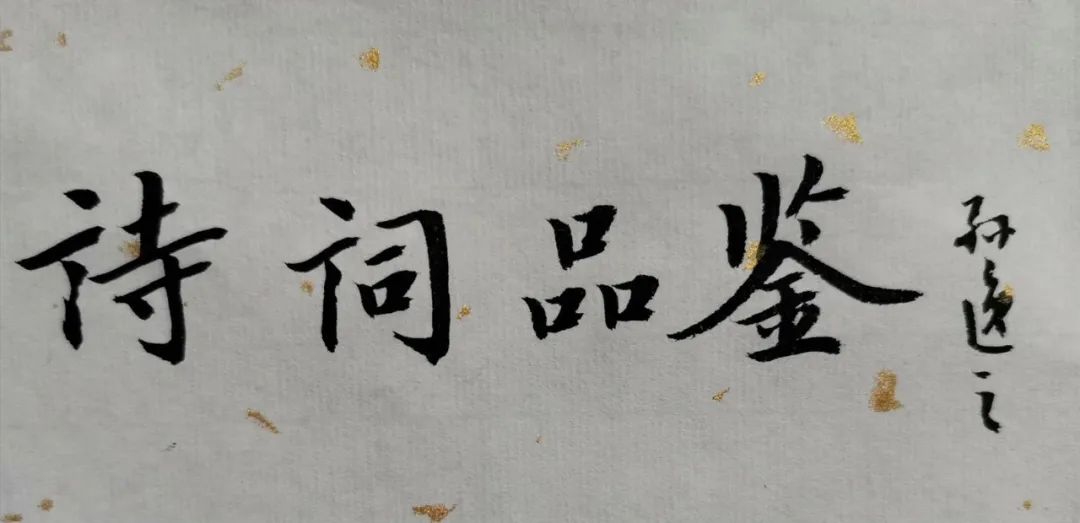 诗词品鉴
孙逸之